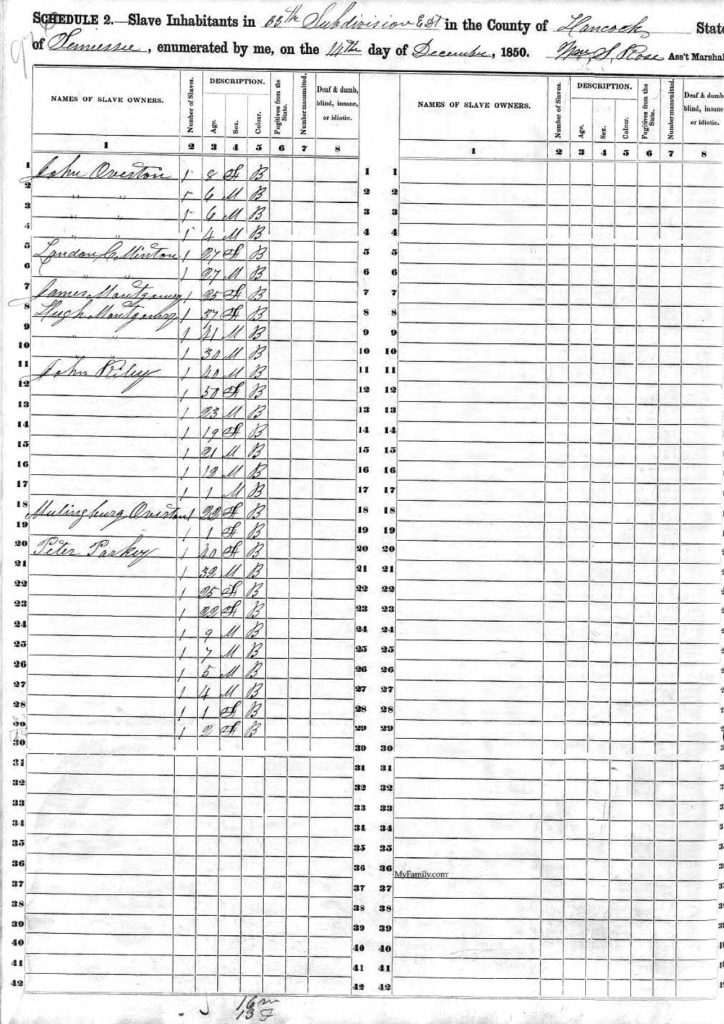 SCHEDULE 2.—Slave Inhabitants in 33th Subdivision E Dt in the County of Hancock State
of Tennessee, enumerated by me, on the 14th day of December, 1850. Wm. S. Rose Ass't Marshal
NAMES OF SLAVE OWNERS. Number of Slaves. DESCRIPTION. Age. Sex. Colour. Fugitives from the State. Number manumitted. Deaf & dumb, blind, insane, or idiotic.
NAMES OF SLAVE OWNERS. Number of Slaves. DESCRIPTION. Age. Sex. Colour. Fugitives from the State. Number manumitted. Deaf & dumb, blind, insane, or idiotic.
1 2 3 4 5 6 7 8 1 2 3 4 5 6 7 8
1 John Overton 1 8 F B 1 1
2 " " 1 6 M B 2 2
3 " " 1 6 M B 3 3
4 " " 1 4 M B 4 4
5 Landon C. Minton 1 27 F B 5 5
6 " " 1 27 M B 6 6
7 James Montgomery 1 25 F B 7 7
8 Hugh Montgomery 1 37 F B 8 8
9 " " 1 41 M B 9 9
10 1 30 M B 10 10
11 John Riley 1 40 M B 11 11
12 1 50 F B 12 12
13 1 23 M B 13 13
14 1 19 F B 14 14
15 1 21 M B 15 15
16 1 12 M B 16 16
17 1 1 M B 17 17
18 Mulingburg Overton 1 22 F B 18 18
19 1 1 F B 19 19
20 Peter Parkey 1 40 F B 20 20
21 1 32 M B 21 21
22 1 25 F B 22 22
23 1 22 F B 23 23
24 1 9 M B 24 24
25 1 7 M B 25 25
26 1 5 M B 26 26
27 1 4 M B 27 27
28 1 1 F B 28 28
29 1 2 F B 29 29
30 30 30
31 31 31
32 32 32
33 33 33
34 34 34
35 35 35
36 36 36 MyFamily.com
37 37 37
38 38 38
39 39 39
40 40 40
41 41 41
42 42 42
16 m
13 F